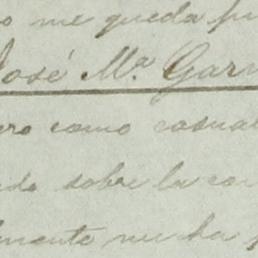 o me queda pu
José Mª Gar
ero como casual
ndo sobre la co
lmente me ha